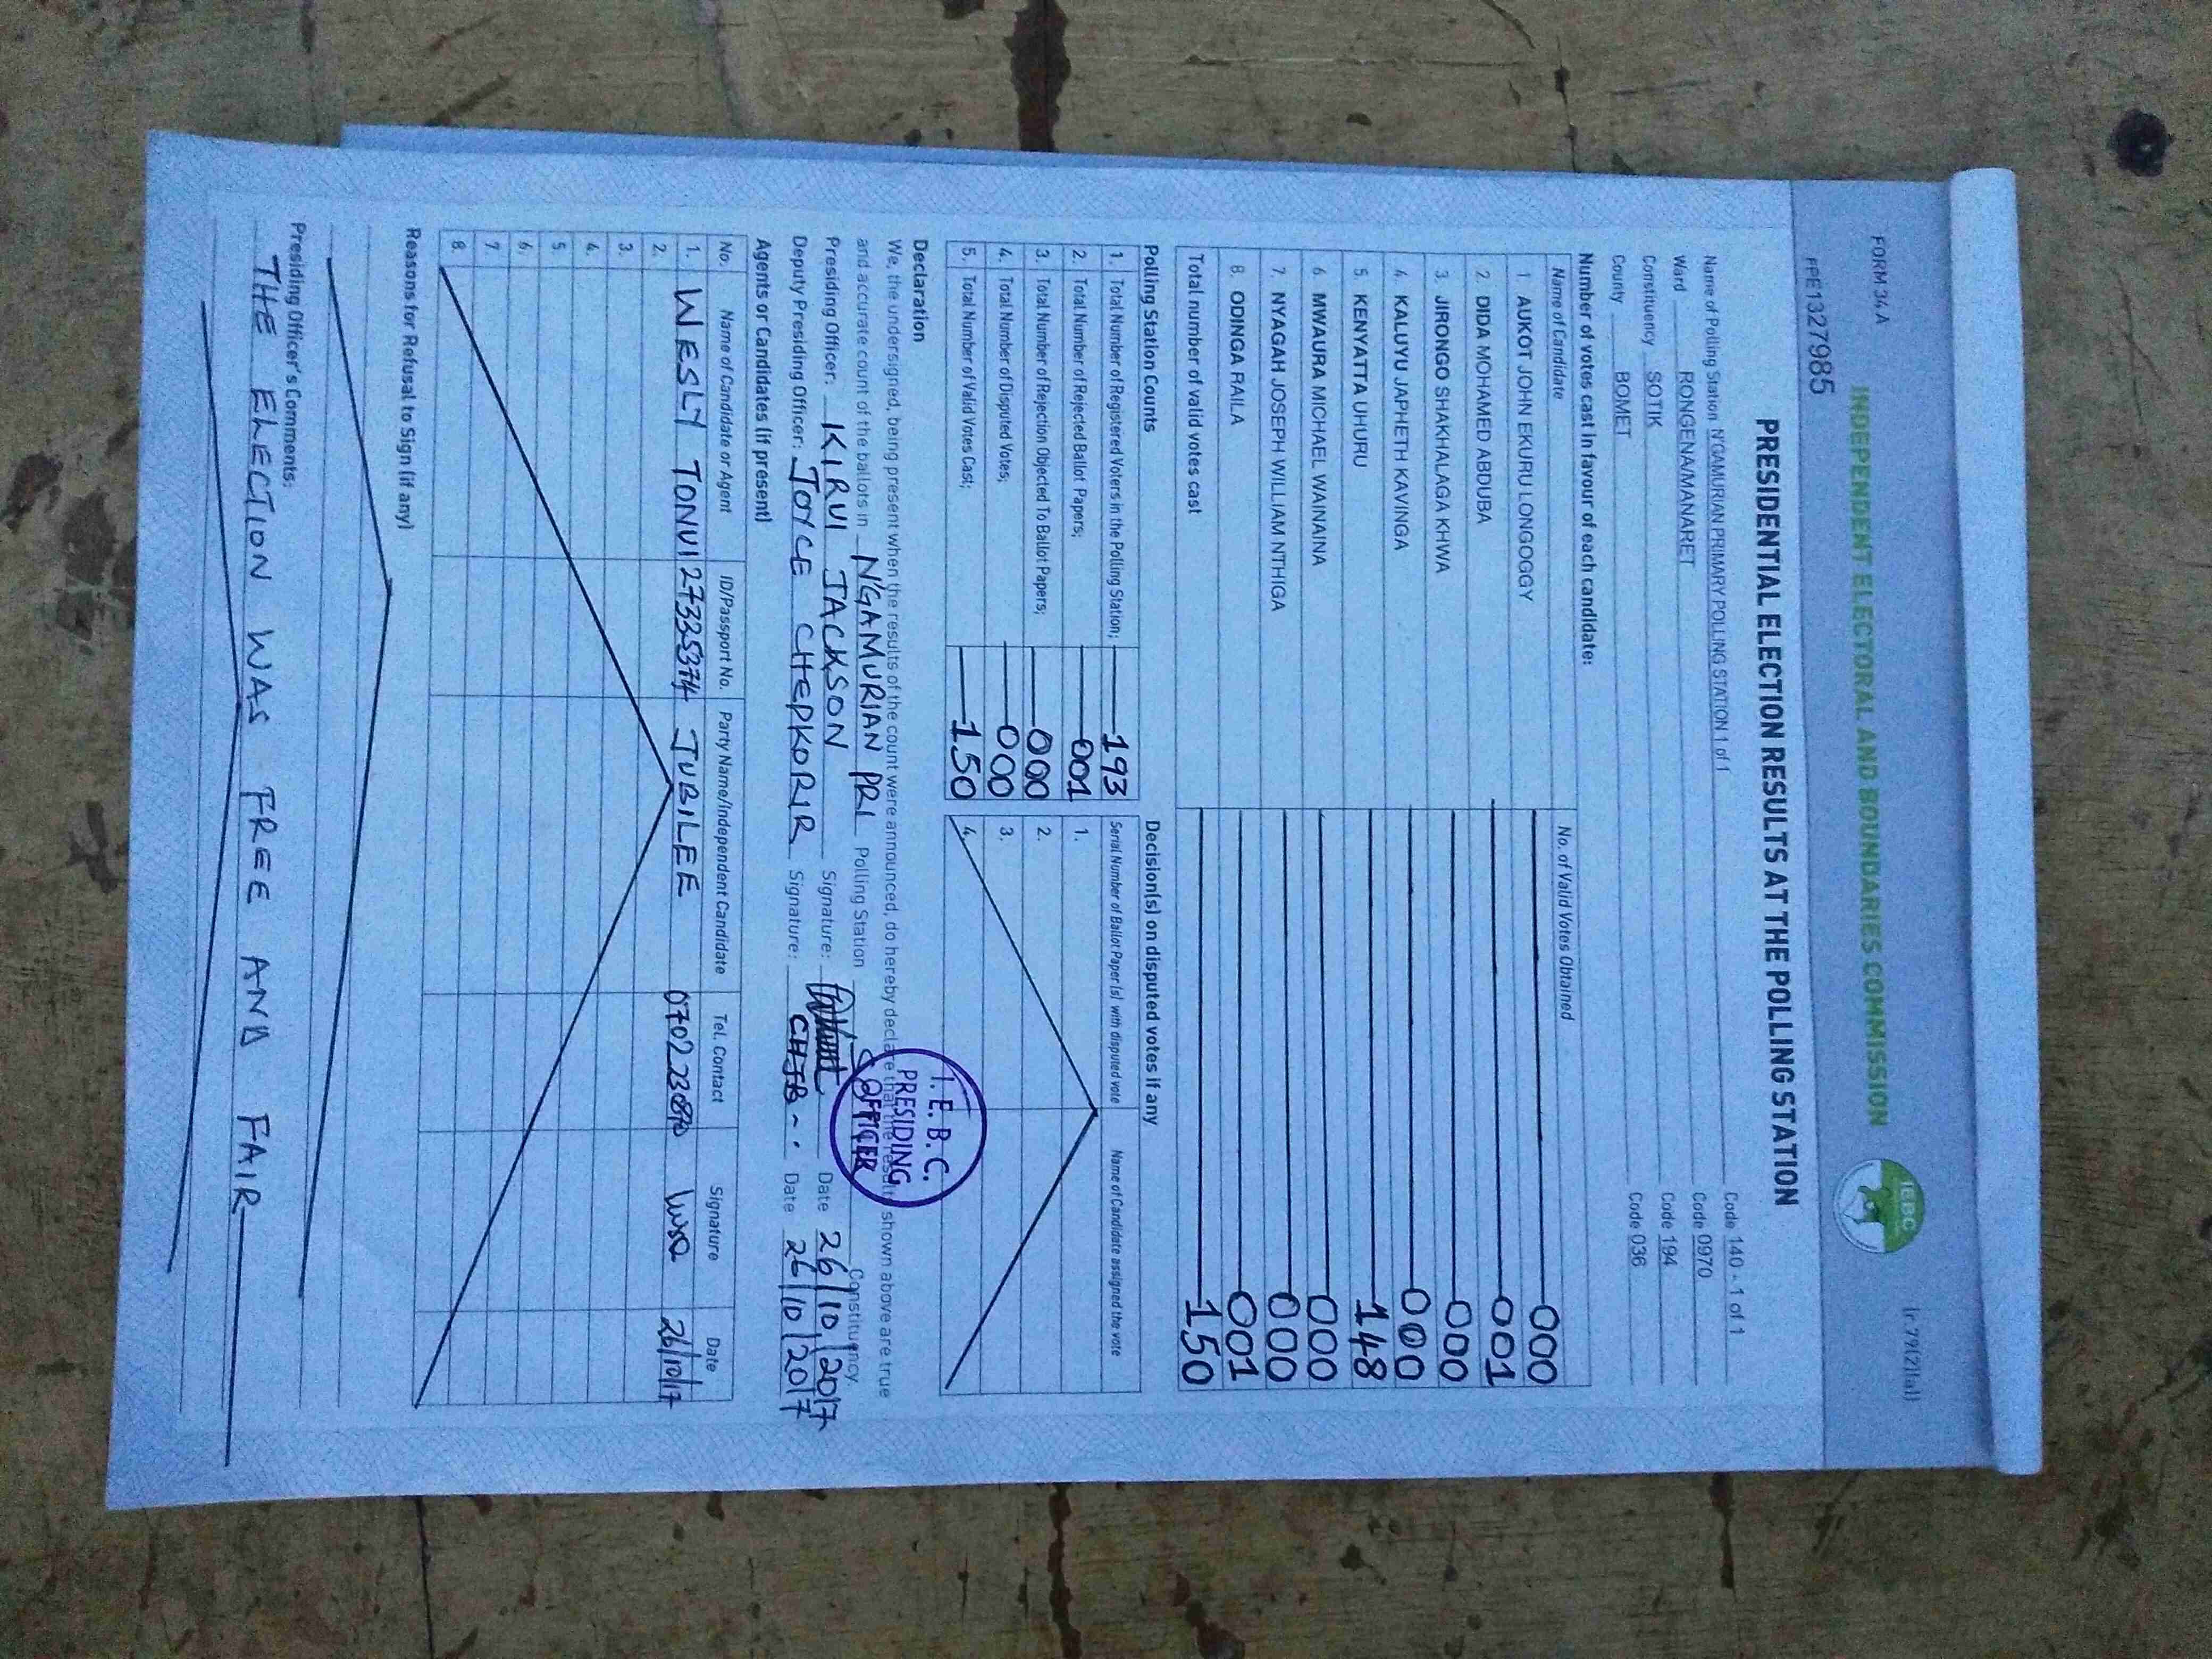 FORM 34A
(r.79(2)(a))
INDEPENDENT ELECTORAL AND BOUNDARIES COMMISSION
IEBC
PPE1327985
PRESIDENTIAL ELECTION RESULTS AT THE POLLING STATION
Name of Polling Station N'GAMURIAN PRIMARY POLLING STATION 1 of 1 Code 140 - 1 of 1
Ward RONGENA/MANARET Code 0970
Constituency SOTIK Code 194
County BOMET Code 036
Number of votes cast in favour of each candidate:
Name of Candidate No. of Valid Votes Obtained
1. AUKOT JOHN EKURU LONGOGGY 000
2. DIDA MOHAMED ABDUBA 001
3. JIRONGO SHAKHALAGA KHWA 000
4. KALUYU JAPHETH KAVINGA 000
5. KENYATTA UHURU 148
6. MWAURA MICHAEL WAINAINA 000
7. NYAGAH JOSEPH WILLIAM NTHIGA 000
8. ODINGA RAILA 001
Total number of valid votes cast 150
Polling Station Counts
1. Total Number of Registered Voters in the Polling Station; 193
2. Total Number of Rejected Ballot Papers; 001
3. Total Number of Rejection Objected To Ballot Papers; 000
4. Total Number of Disputed Votes; 000
5. Total Number of Valid Votes Cast; 150
Decision(s) on disputed votes if any
Serial Number of Ballot Paper(s) with disputed vote Name of Candidate assigned the vote
1.
2.
3.
4.
Declaration
We, the undersigned, being present when the results of the count were announced, do hereby declare that the results shown above are true
and accurate count of the ballots in N'GAMURIAN PRI Polling Station Constituency.
I.E.B.C.
PRESIDING
OFFICER
Presiding Officer: KIRUI JACKSON Signature: Date 26/10/2017
Deputy Presiding Officer: JOYCE CHEPKORIR Signature: Date 26/10/2017
Agents or Candidates (if present)
No. Name of Candidate or Agent ID/Passport No. Party Name/Independent Candidate Tel. Contact Signature Date
1. WESLY TONUI 27335374 JUBILEE 26/10/17
2.
3.
4.
5.
6.
7.
8.
Reasons for Refusal to Sign (if any)
Presiding Officer's Comments:
THE ELECTION WAS FREE AND FAIR